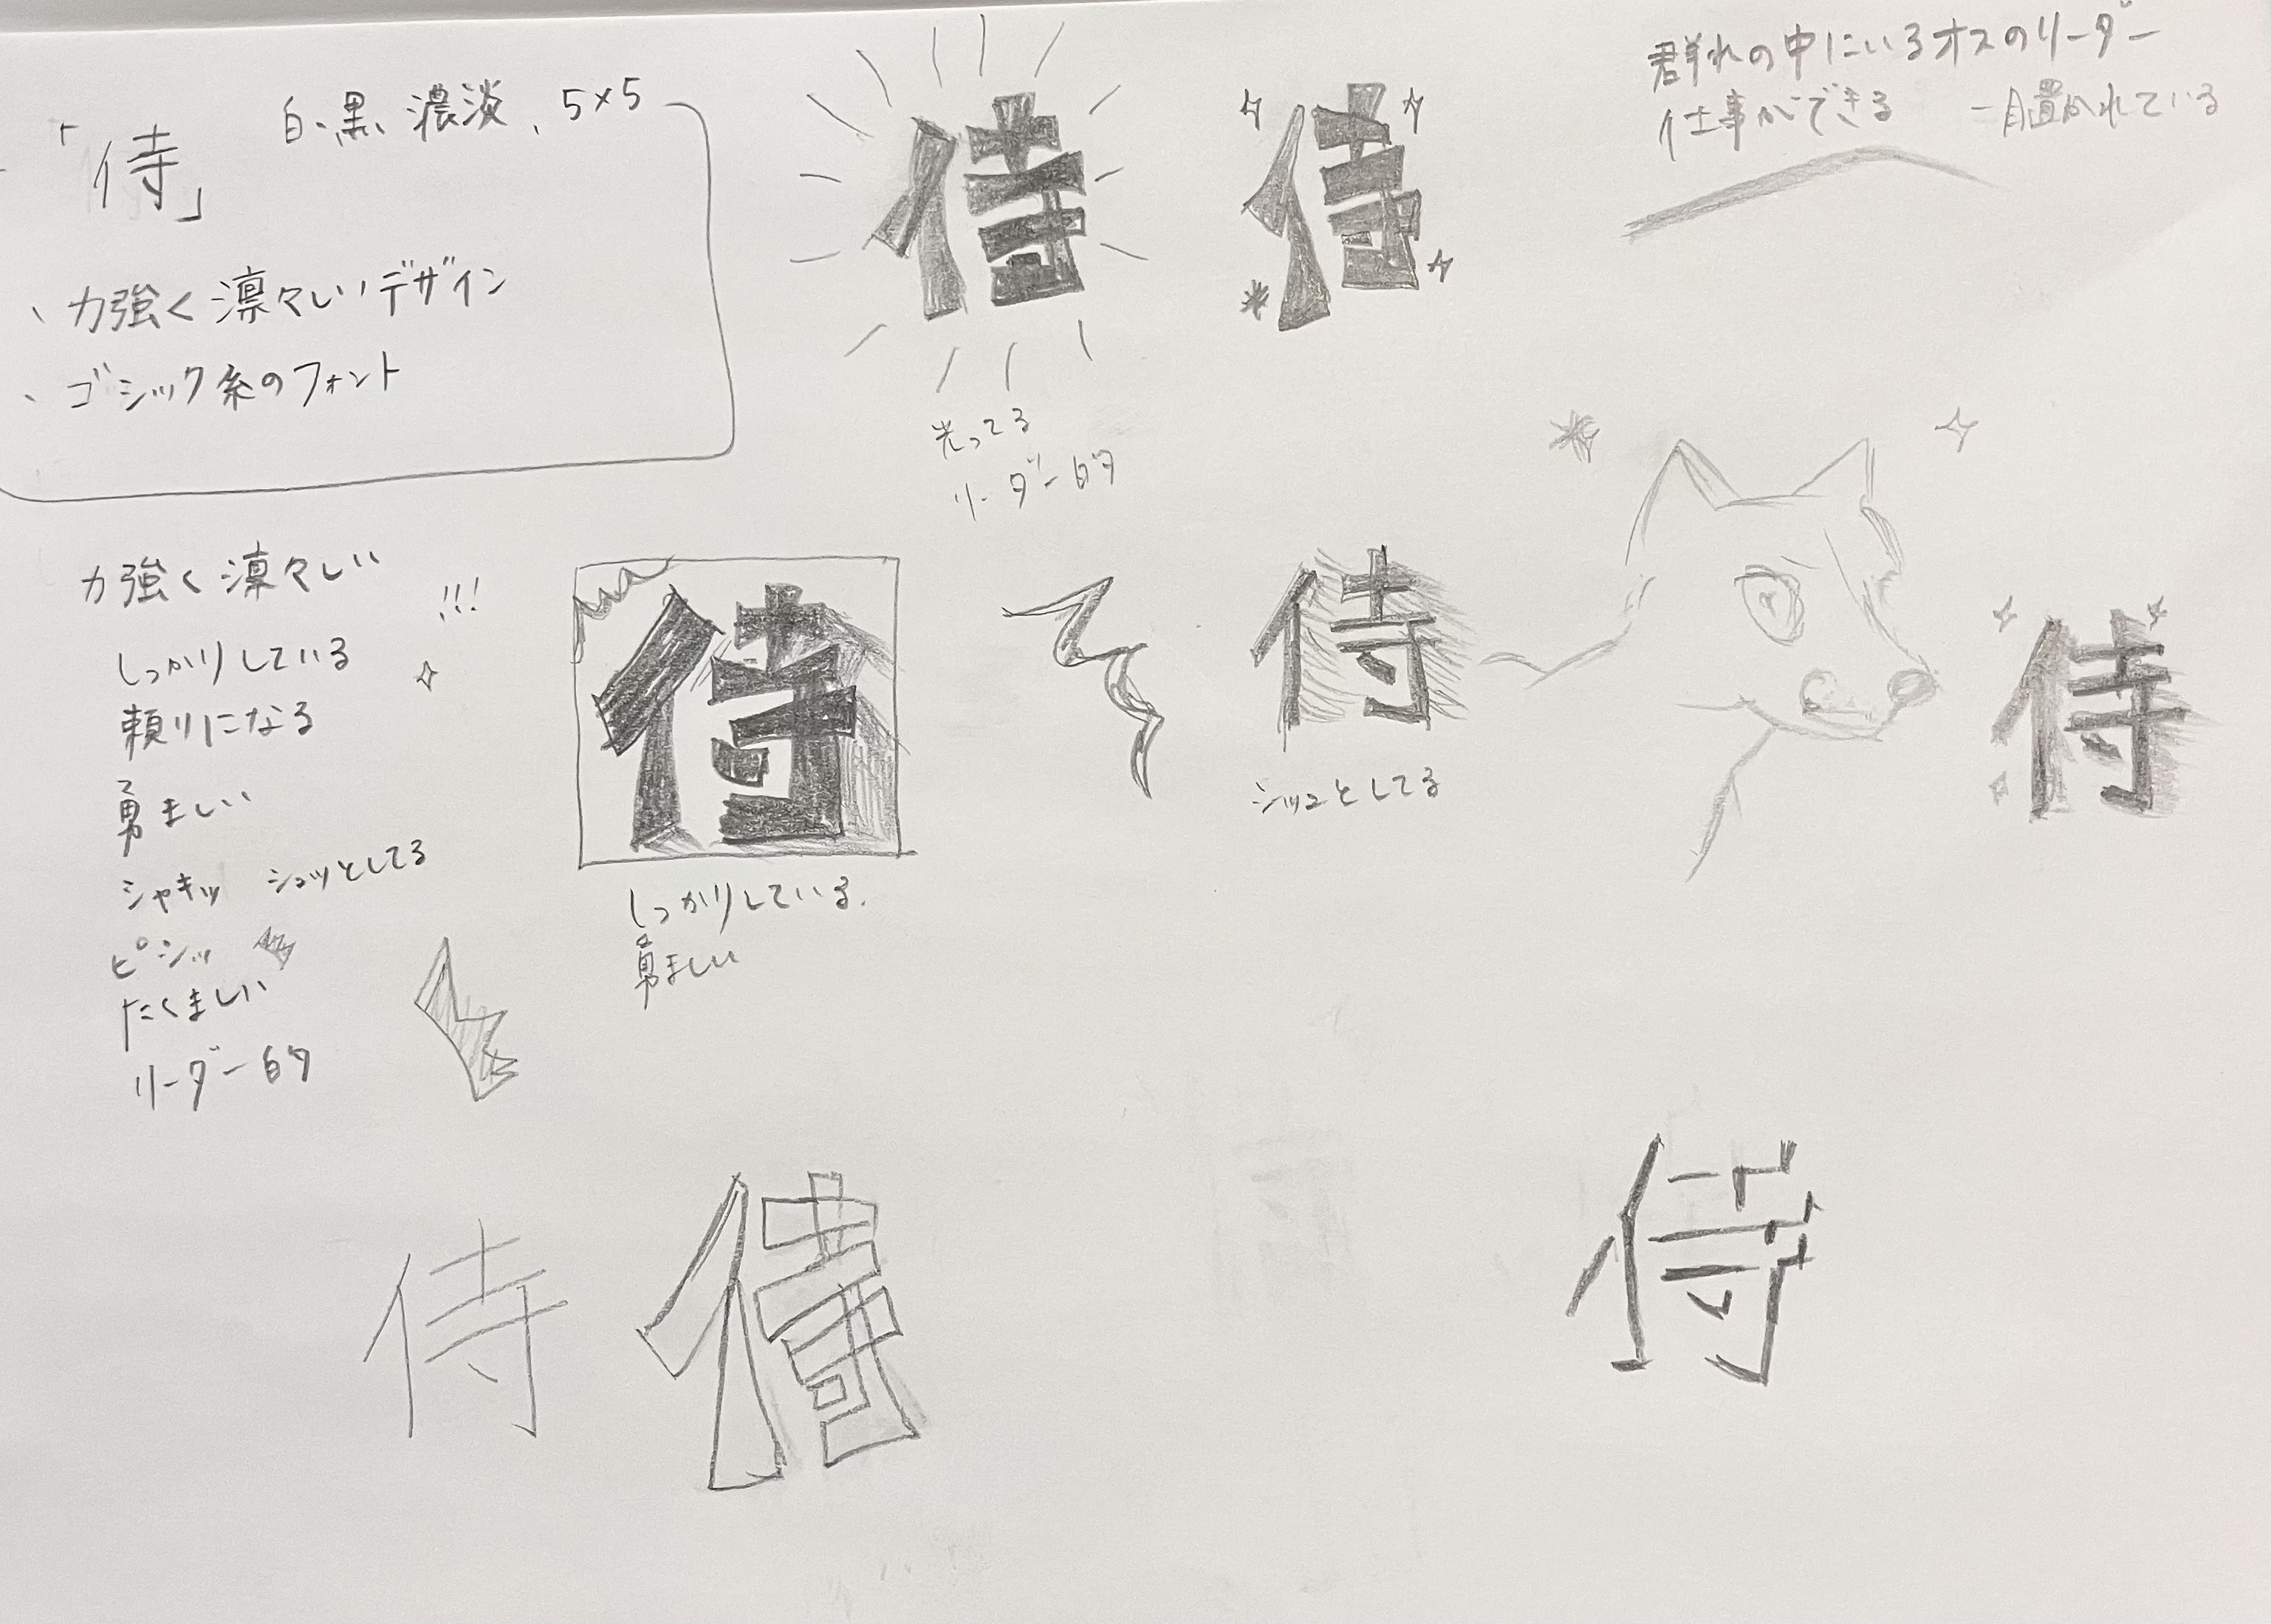 「侍」
白、黒、濃淡、5×5
、力強く凛々しいデザイン
、ゴシック系のフォント
侍
光ってる
リーダー的
侍
群れの中にいるオスのリーダー
仕事ができる 一目置かれている
力強く凛々しい
!!!
しっかりしている
頼りになる
勇ましい
シャキッ シュッとしてる
ピシッ
たくましい
リーダー的
侍
しっかりしている.
勇ましい
侍
シュッとしてる
侍
侍
侍
侍